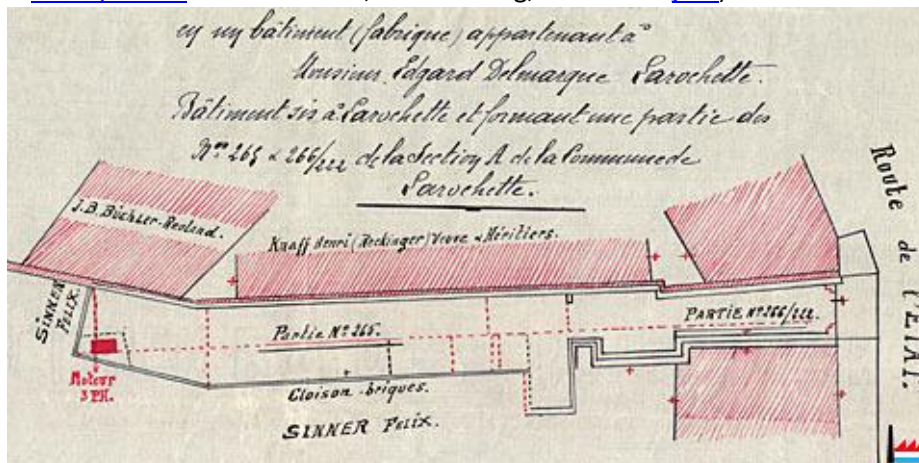 en un bâtiment (fabrique) appartenant à
Monsieur Edgard Delmarque Larochette.
Bâtiment sis à Larochette et formant une partie des
Nos 265 & 266/222 de la Section A de la Commune de
Larochette.
J.B. Büchler-Reoland.
Knaff Henri (Reckinger) Veuve & Héritiers.
Route de l'ETAT.
SINNER FELIX.
Partie No 265.
PARTIE No 266/222.
Moteur
3 PH.
Cloison briques.
SINNER FELIX.